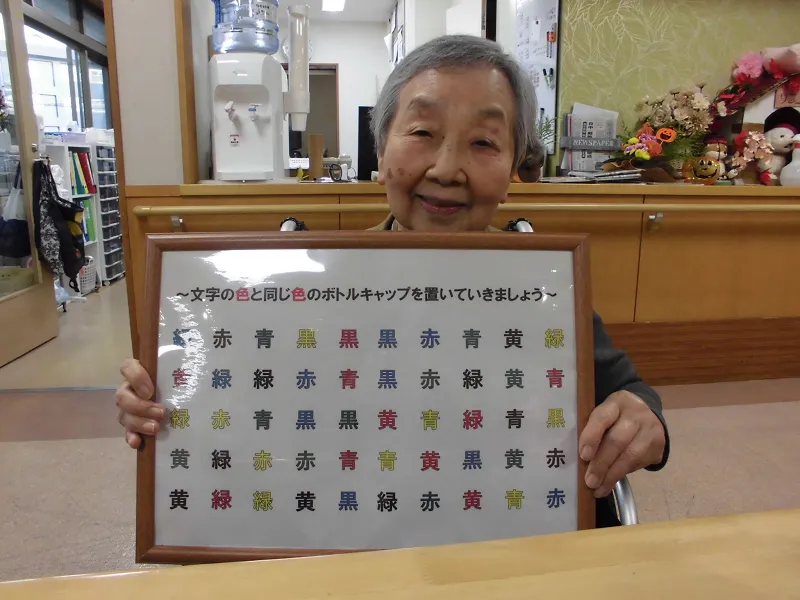 ～文字の色と同じ色のボトルキャップを置いていきましょう～
緑 赤 青 黒 黒 黒 赤 青 黄 緑
黄 緑 緑 赤 青 黒 赤 緑 黄 青
緑 赤 青 黒 黒 黄 青 緑 青 黒
黄 緑 赤 赤 青 青 黄 黒 黄 赤
黄 緑 緑 黄 黒 緑 赤 黄 青 赤
NEWSPAPER